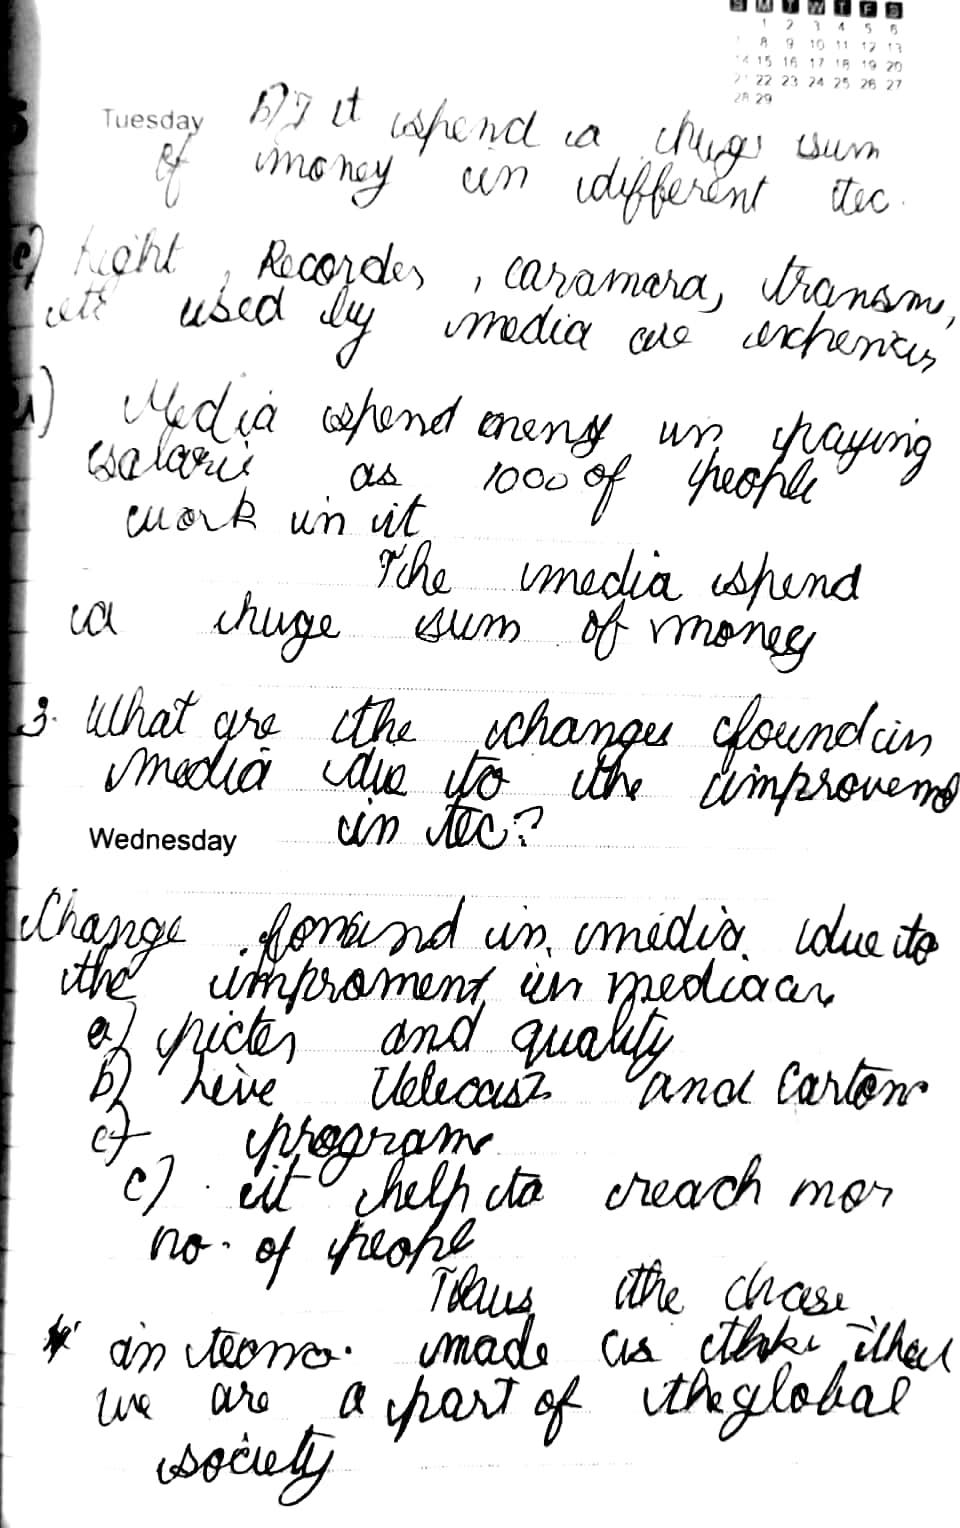 S M T W T F S
1 2 3 4 5 6
8 9 10 11 12 13
14 15 16 17 18 19 20
21 22 23 24 25 26 27
28 29
Tuesday
b) It spend a huge sum
of money in different tec.
c) Light, Recorder, caramara, transm,
etc used by media are
d) Media spend money in paying
salarie as 1000 of people
work in it
The media spend
a huge sum of money
3. What are the changes found in
media due to the improvem
in tec?
Wednesday
Change found in media due to
the improment in media are
a) picter and quality
b) Live Telecast and Carton
program
c) it help to reach mor
no. of peopl
Thus the
in made us that
we are a part of the global
society